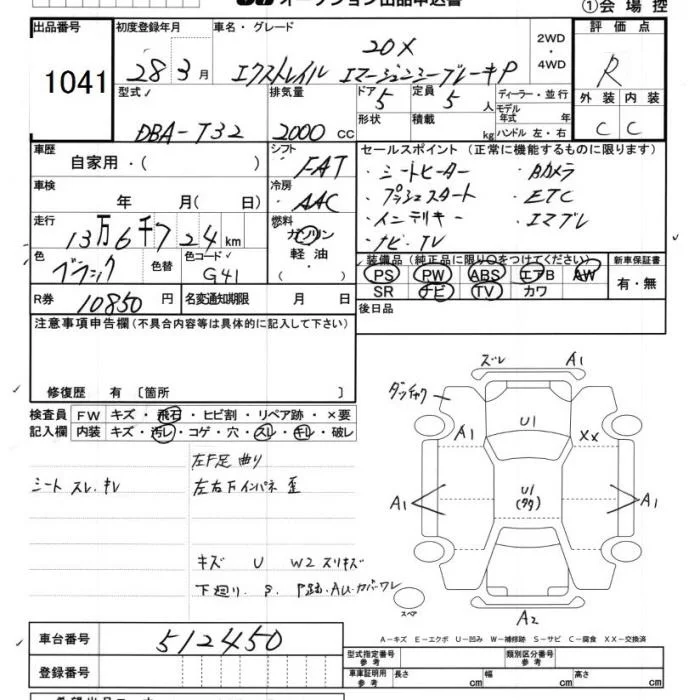 オークション出品申込書
①会場控
出品番号
1041
初度登録年月
28 3月
車名・グレード
20X
エクストレイル エマージェンシーブレーキP
2WD
・
4WD
評価点
R
外装 内装
C C
型式
DBA-T32
排気量
2000 cc
ドア
5
定員
5 人
ディーラー・並行
モデル年式 年
形状
積載
kg
ハンドル 左・右
車歴
自家用・( )
シフト
FAT
車検
年 月( 日)
冷房
AAC
走行
13万6千724 km
燃料
ガソリン
軽油
・( )
色
ブラック
色替
色コード
G41
R券
10850 円
名変通知期限 月 日
セールスポイント (正常に機能するものに限ります)
・シートヒーター ・Bカメラ
・プッシュスタート ・ETC
・インテリキー ・エマブレ
・ナビ・TV
装備品(純正品に限り○をつけてください)
PS PW ABS エアB AW
SR ナビ TV カワ
新車保証書
有・無
後日品
注意事項申告欄(不具合内容等は具体的に記入して下さい)
修復歴 有〔箇所 〕
検査員記入欄
FW キズ・飛石・ヒビ割・リペア跡・×要
内装 キズ・汚レ・コゲ・穴・スレ・キレ・破レ
シート スレ.キレ
左F足曲り
左右下インパネ歪
キズ U W2 スリキズ
下廻り.S.P跡.AUカバーワレ
ズレ A1
ダッチャク
A1 U1 XX
A1 U1 A1
スペア
A2
A-キズ E-エクボ U-凹み W-補修跡 S-サビ C-腐食 XX-交換済
車台番号
512450
登録番号
型式指定番号
参考
類別区分番号
参考
車庫証明用
参考
長さ cm 幅 cm 高さ cm